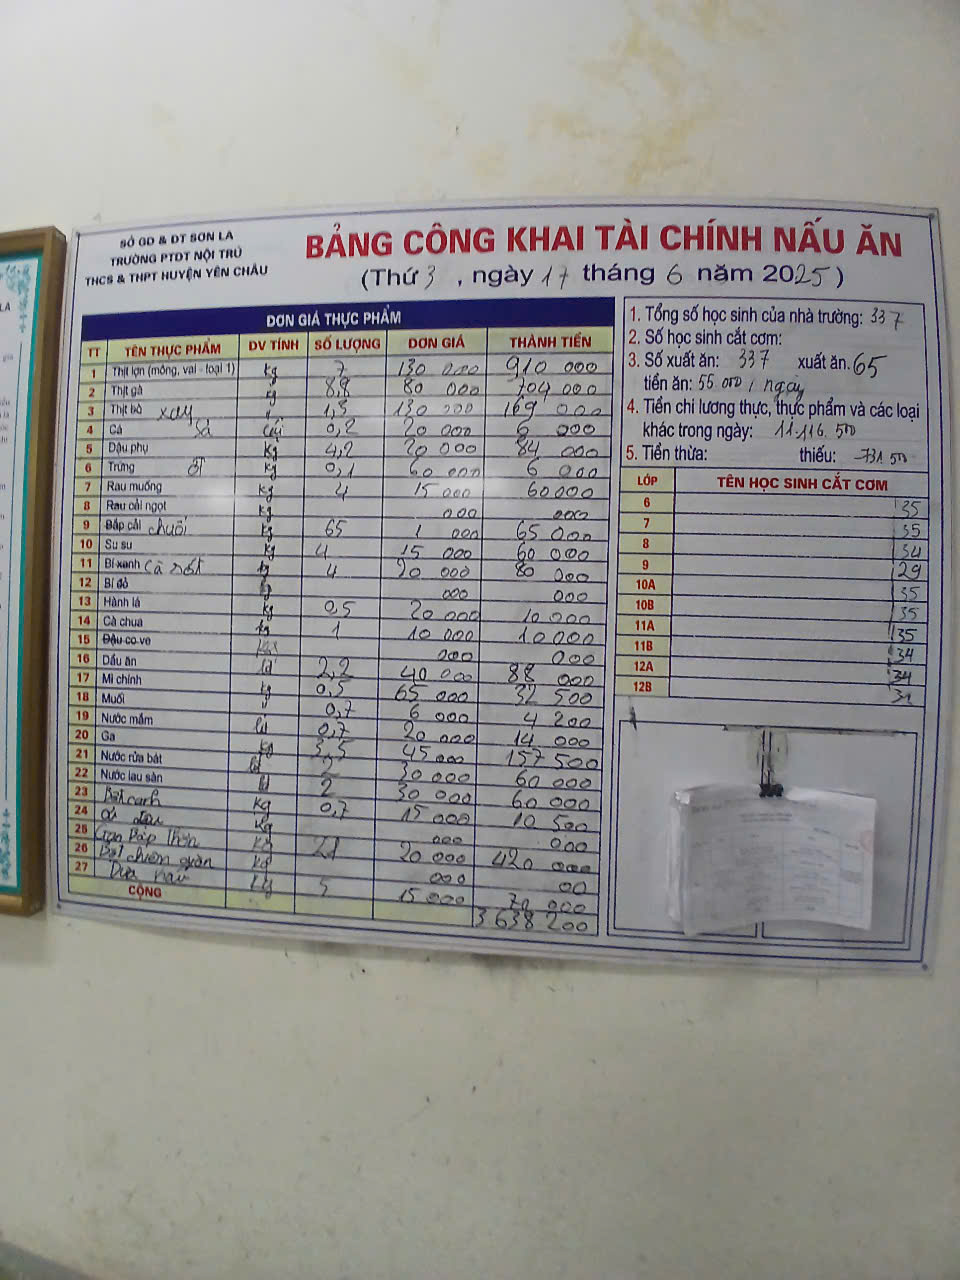 SỞ GD & ĐT SƠN LA
TRƯỜNG PTDT NỘI TRÚ
THCS & THPT HUYỆN YÊN CHÂU
BẢNG CÔNG KHAI TÀI CHÍNH NẤU ĂN
(Thứ 3, ngày 17 tháng 6 năm 2025)
ĐƠN GIÁ THỰC PHẨM
TT TÊN THỰC PHẨM DV TÍNH SỐ LƯỢNG ĐƠN GIÁ THÀNH TIỀN
1 Thịt lợn (mông, vai - loại 1) kg 7 130 000 910 000
2 Thịt gà kg 8,8 80 000 704 000
3 Thịt bò xay 1,3 130 000 169 000
4 Cá Sả 0,2 20 000 6 000
5 Đậu phụ kg 4,2 20 000 84 000
6 Trứng ớt kg 0,1 60 000 6 000
7 Rau muống kg 4 15 000 60 000
8 Rau cải ngọt kg 000 000
9 Bắp cải chuối kg 65 1 000 65 000
10 Su su kg 4 15 000 60 000
11 Bí xanh Cà rốt kg 4 20 000 80 000
12 Bí đỏ kg 000 000
13 Hành lá kg 0,5 20 000 10 000
14 Cà chua kg 1 10 000 10 000
15 Đậu co ve 000 000
16 Dầu ăn lít 2,2 40 000 88 000
17 Mì chính kg 0,5 65 000 32 500
18 Muối 0,7 6 000 4 200
19 Nước mắm lít 0,7 20 000 14 000
20 Ga kg 3,5 45 000 157 500
21 Nước rửa bát lít 2 30 000 60 000
22 Nước lau sàn lít 2 30 000 60 000
23 Bột canh kg 0,7 15 000 10 500
24 kg 000 000
25 kg 21 20 000 420 000
26 Bột chiên kg 000 00
27 Dưa kg 5 15 000 70 000
CỘNG 3 638 200
1. Tổng số học sinh của nhà trường: 337
2. Số học sinh cắt cơm:
3. Số xuất ăn: 337 xuất ăn. 65
tiền ăn: 55 000 / ngày
4. Tiền chi lương thực, thực phẩm và các loại
khác trong ngày: 11.116.500
5. Tiền thừa: thiếu: 731 500
LỚP TÊN HỌC SINH CẮT CƠM
6 35
7 35
8 34
9 29
10A 35
10B 35
11A 35
11B 34
12A 34
12B 31